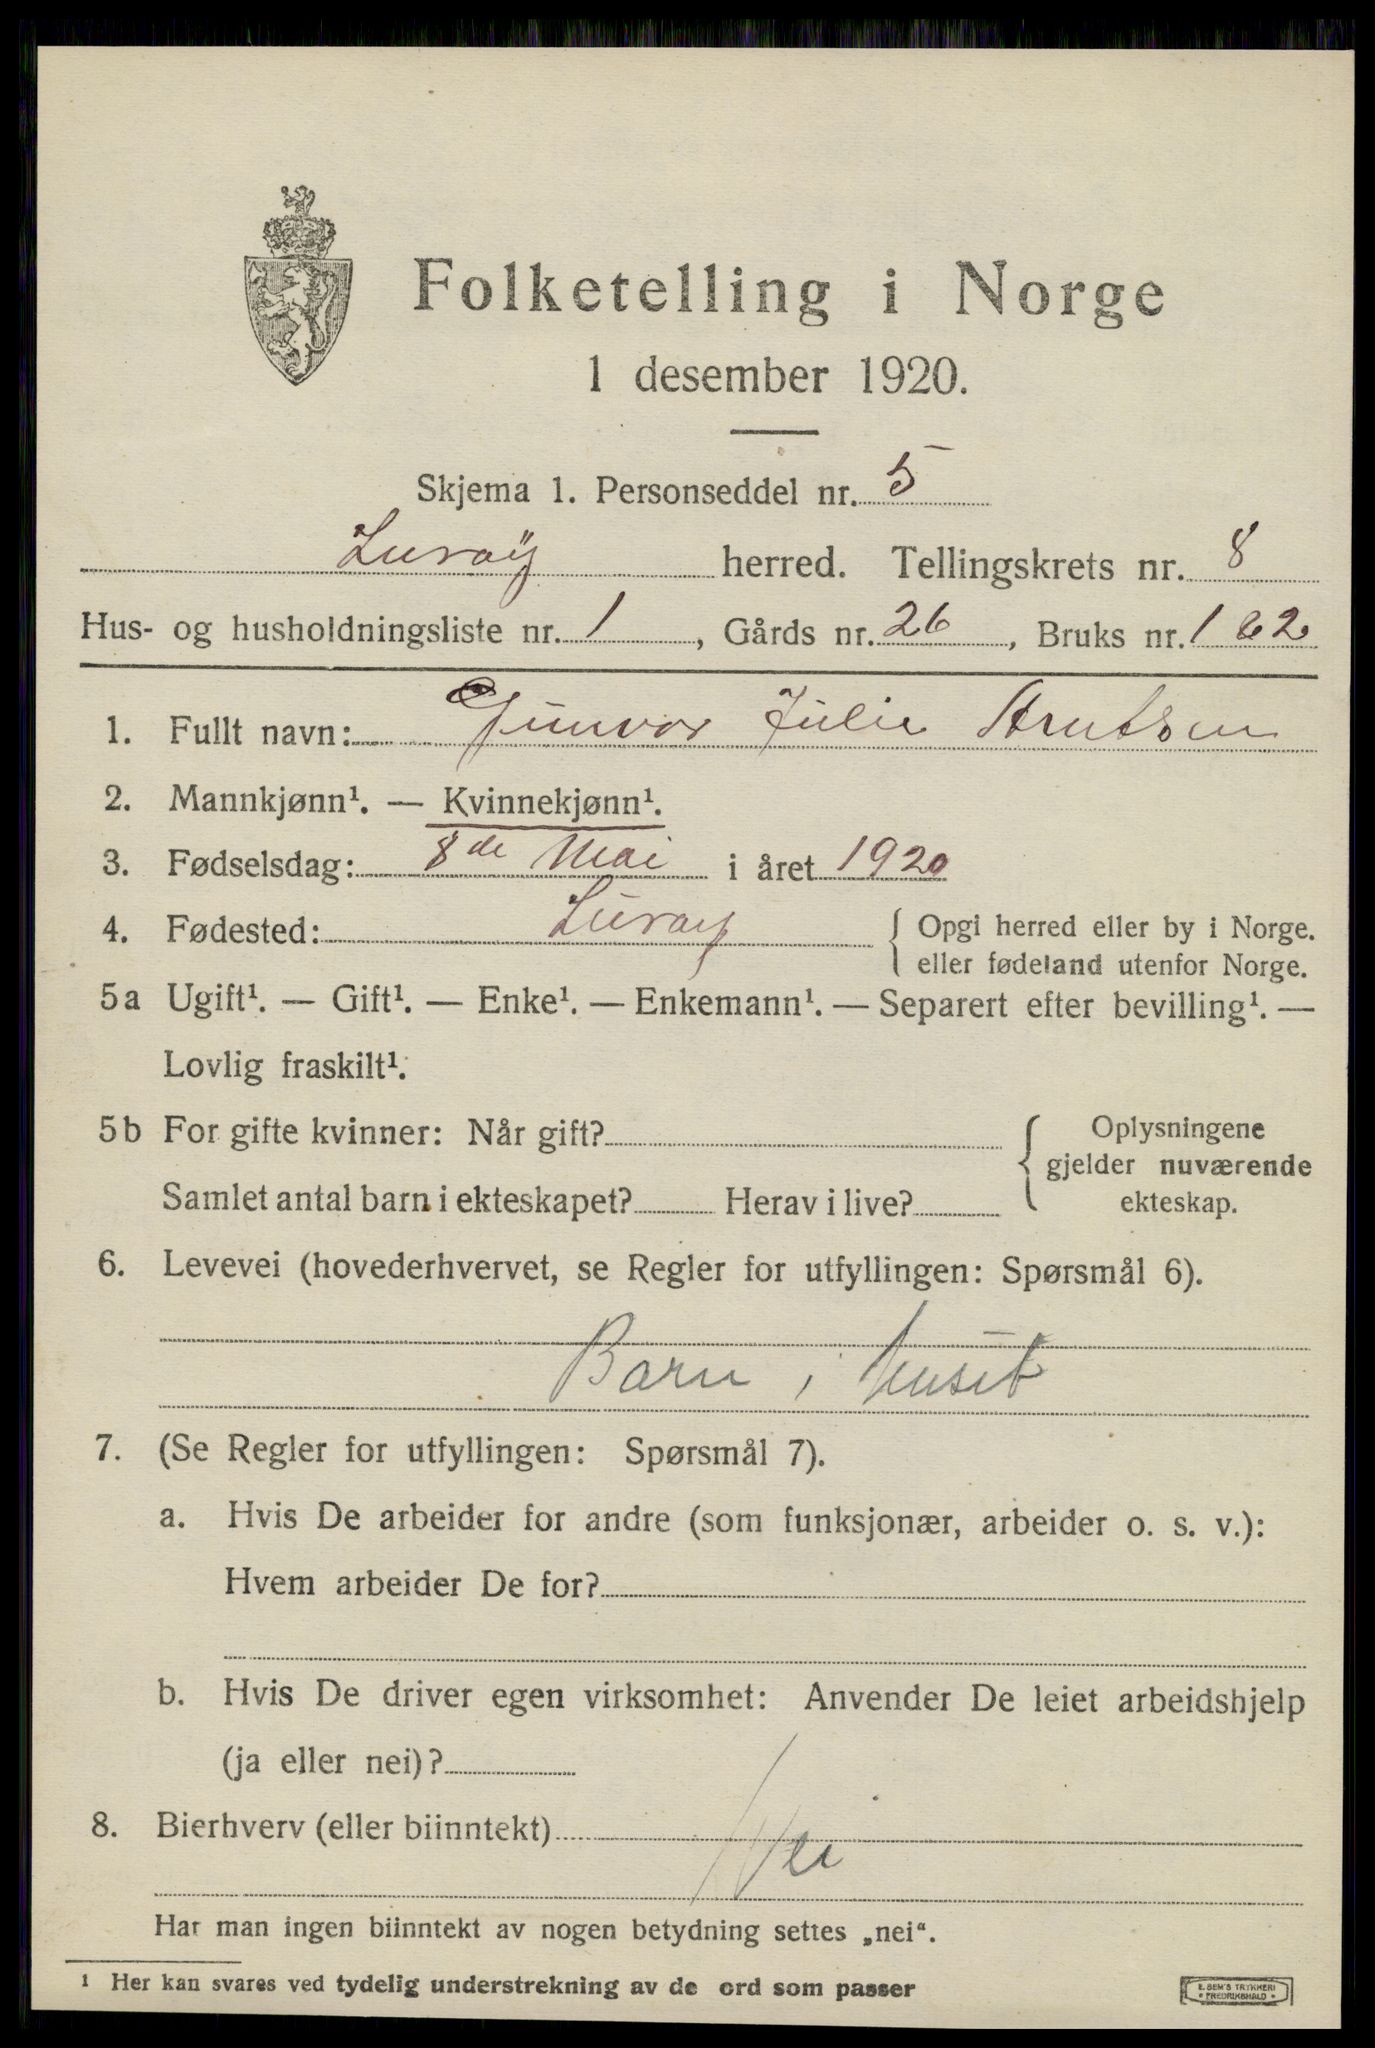 Folketelling i Norge
1 desember 1920.
Skjema 1. Personseddel nr. 5
Lurøy herred. Tellingskrets nr. 8
Hus- og husholdningsliste nr. 1, Gårds nr. 26, Bruks nr. 1 & 2
1. Fullt navn: Gunvor Julie
2. Mannkjønn¹. — Kvinnekjønn¹.
3. Fødselsdag: 8de Mai i året 1920
4. Fødested: Lurøy { Opgi herred eller by i Norge.
eller fødeland utenfor Norge.
5a Ugift¹. — Gift¹. — Enke¹. — Enkemann¹. — Separert efter bevilling¹. —
Lovlig fraskilt¹.
5b For gifte kvinner: Når gift? { Oplysningene
gjelder nuværende
Samlet antal barn i ekteskapet? Herav i live? ekteskap.
6. Levevei (hovederhvervet, se Regler for utfyllingen: Spørsmål 6).
Barn i huset
7. (Se Regler for utfyllingen: Spørsmål 7).
a. Hvis De arbeider for andre (som funksjonær, arbeider o. s. v.):
Hvem arbeider De for?
b. Hvis De driver egen virksomhet: Anvender De leiet arbeidshjelp
(ja eller nei)?
8. Bierhverv (eller biinntekt)
Nei
Har man ingen biinntekt av nogen betydning settes „nei“.
¹ Her kan svares ved tydelig understrekning av de ord som passer
E. SEM'S TRYKKERI
* FREDRIKSHALD *